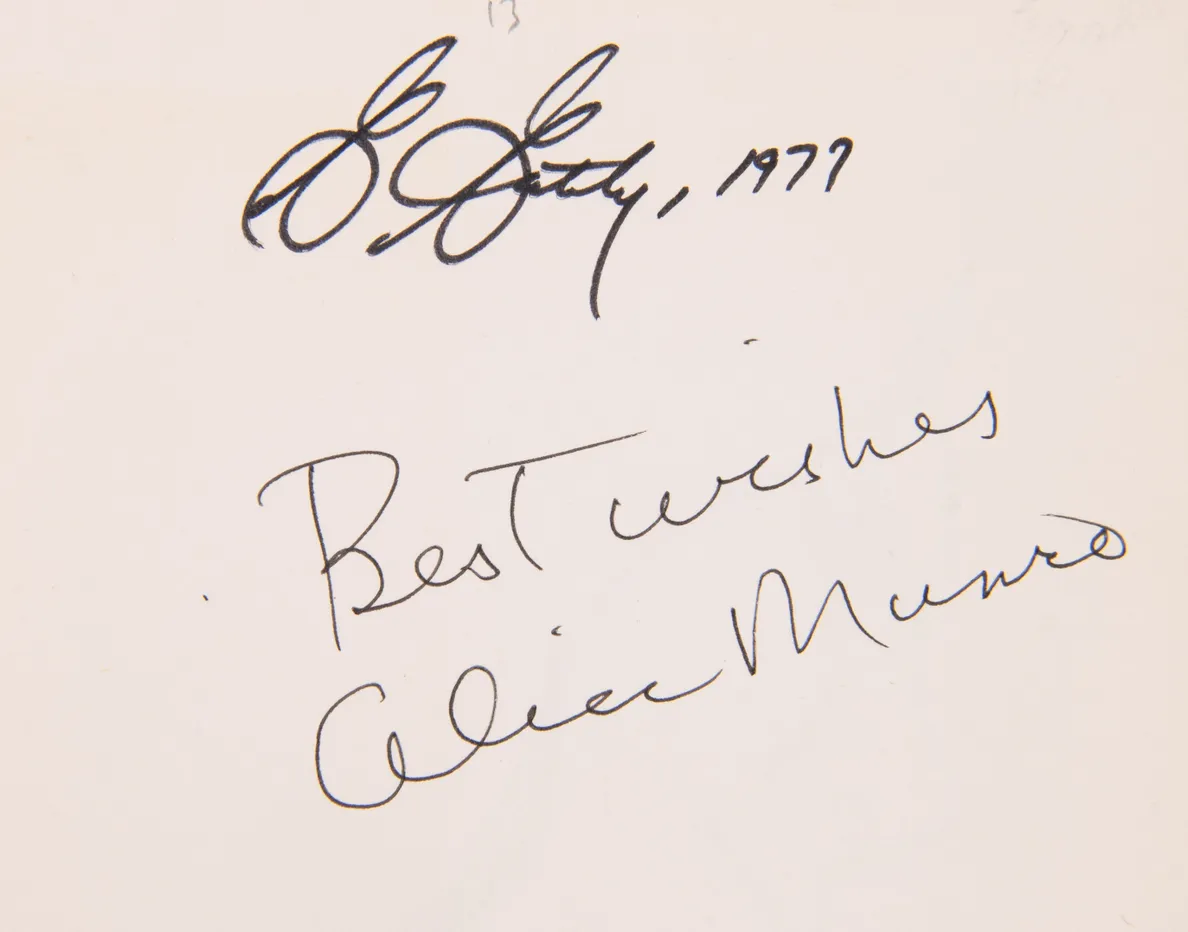 13
, 1977
Best wishes
Alice Munro